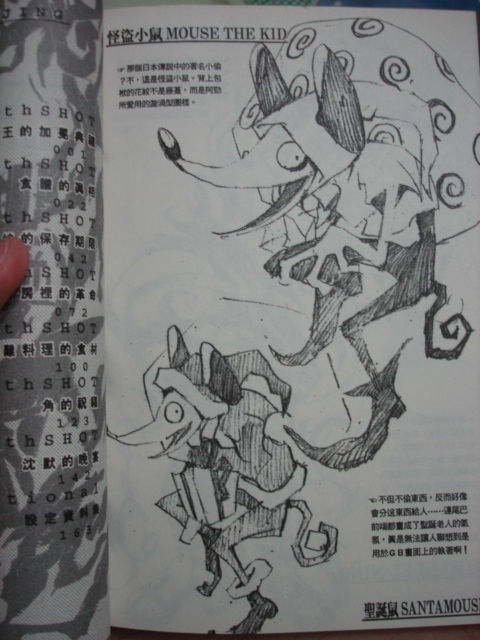 JING
thSHOT
王的加冕典禮
001
thSHOT
食譜的真相
022
thSHOT
的保存期限
042
thSHOT
房裡的革命
072
thSHOT
難料理的食材
100
thSHOT
角的祝福
123
thSHOT
沈默的晚宴
142
tional
設定資料集
怪盜小鼠 MOUSE THE KID
☞那個日本傳說中的著名小偷
?不,這是怪盜小鼠。背上包
袱的花紋不是藤蔓,而是阿勁
所愛用的漩渦型圖樣。
☜不但不偷東西,反而好像
會分送東西給人……連尾巴
前端都畫成了聖誕老人的氣
氛,真是無法讓人聯想到是
用於GB畫面上的執著啊!
聖誕鼠 SANTAMOUS